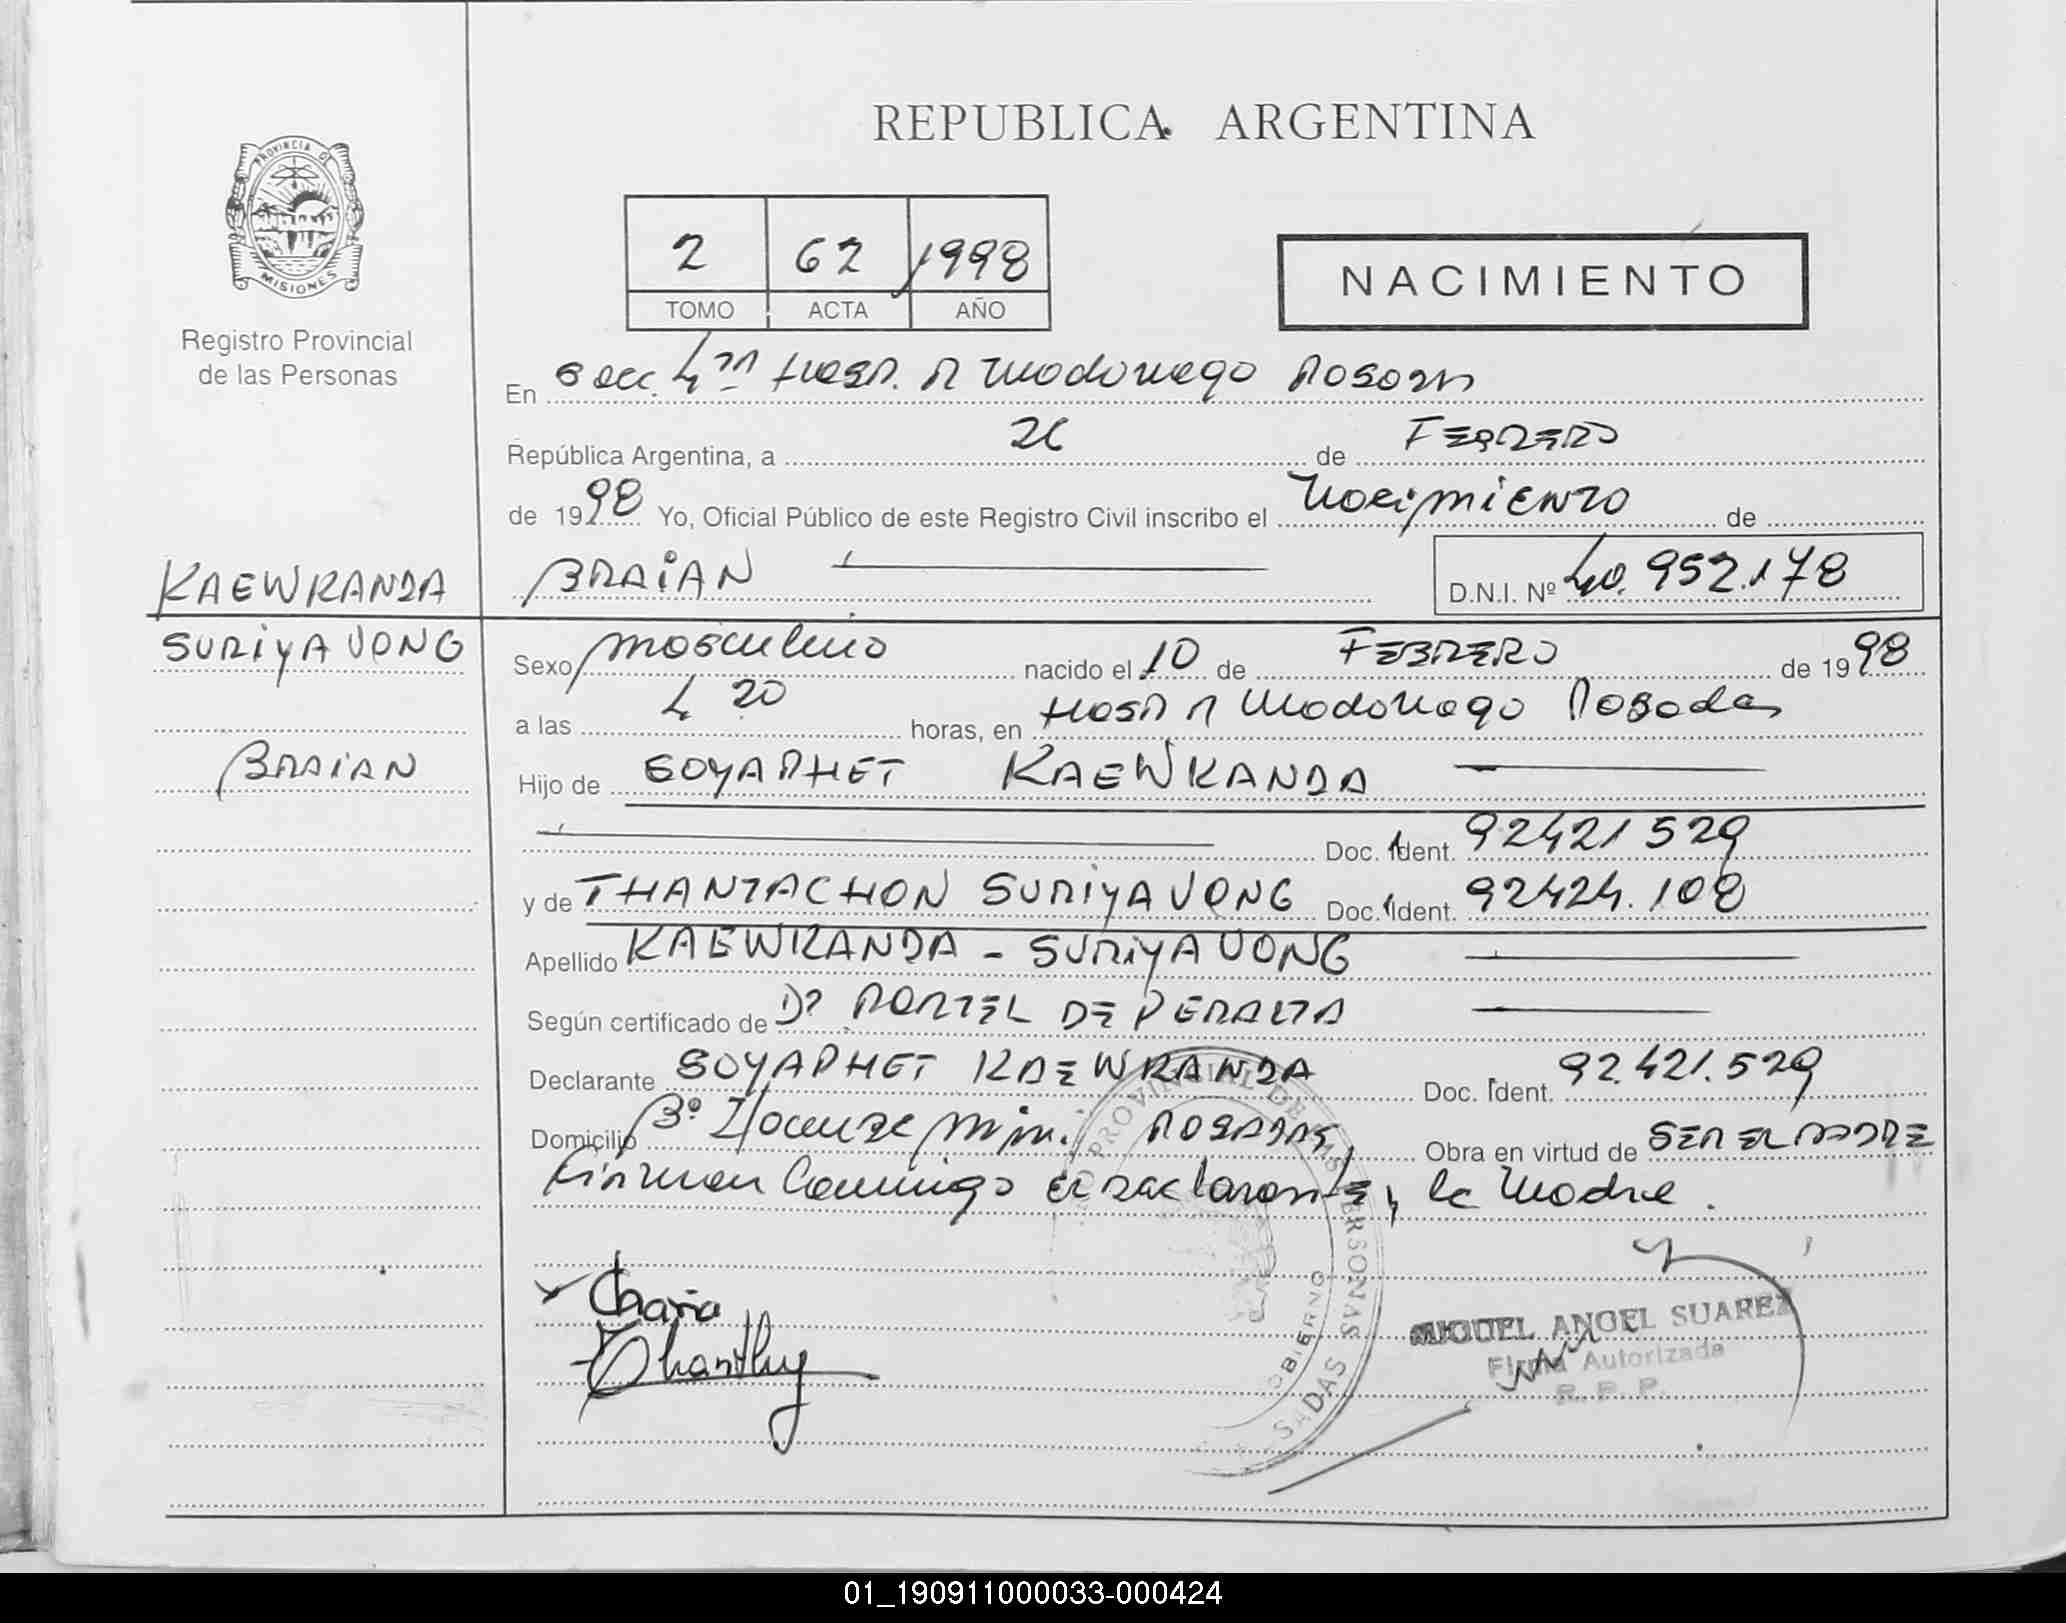 REPUBLICA ARGENTINA
PROVINCIA DE
MISIONES
Registro Provincial
de las Personas
2 62 1998
TOMO ACTA AÑO
NACIMIENTO
En Secc. 4ta Hosp. R Madariaga Posadas
República Argentina, a 26 de FEBRERO
de 1998 Yo, Oficial Público de este Registro Civil inscribo el Nacimiento de
KAEWKANDA
BRAIAN D.N.I. Nº 40.952.178
SURIYAVONG
Sexo masculino nacido el 10 de FEBRERO de 1998
a las 4 20 horas, en Hosp R Madariaga Posadas
BRAIAN
Hijo de SOYAPHET KAEWKANDA
Doc. Ident. 92421529
y de THANTACHON SURIYAVONG Doc. Ident. 92424.108
Apellido KAEWKANDA - SURIYAVONG
Según certificado de Dr PORTEL DE PERALTA
Declarante SOYAPHET KAEWKANDA Doc. Ident. 92.421.529
Domicilio Bº POSADAS Obra en virtud de SER EL PADRE
Firman Conmigo el declarante y la Madre.
Chans
Thanthy
PROVINCIAL DE LAS PERSONAS
GOBIERNO
MIGUEL ANGEL SUAREZ
Firma Autorizada
R. P. P.
01_190911000033-000424